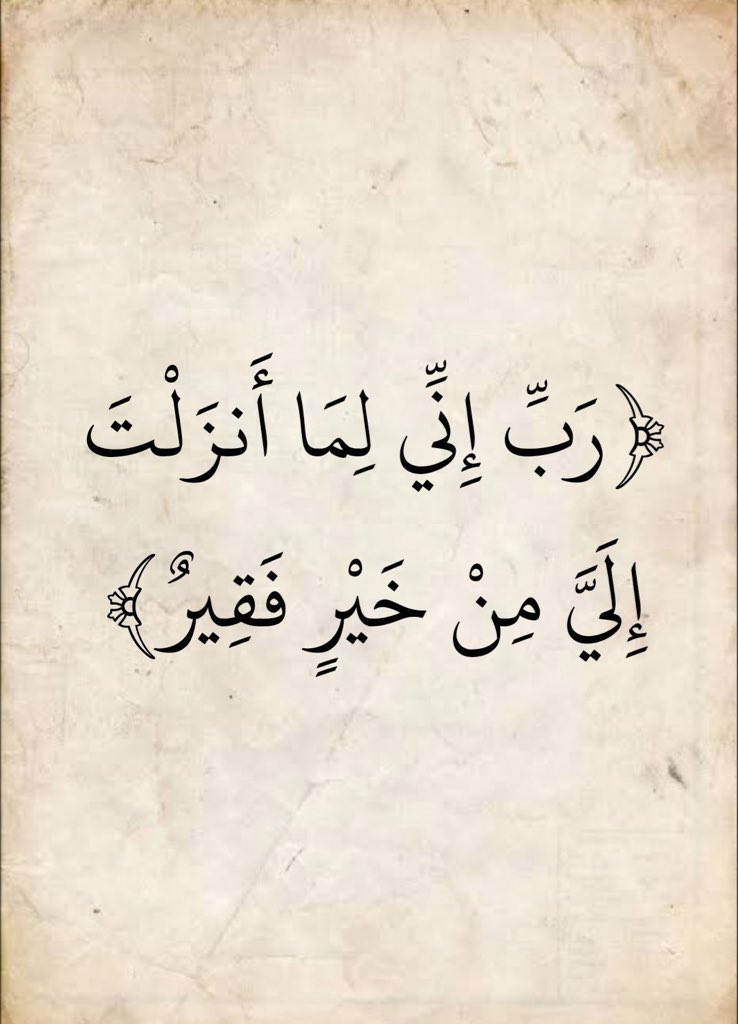 ﴿ رَبِّ إِنِّي لِمَا أَنزَلْتَ
إِلَيَّ مِنْ خَيْرٍ فَقِيرٌ ﴾